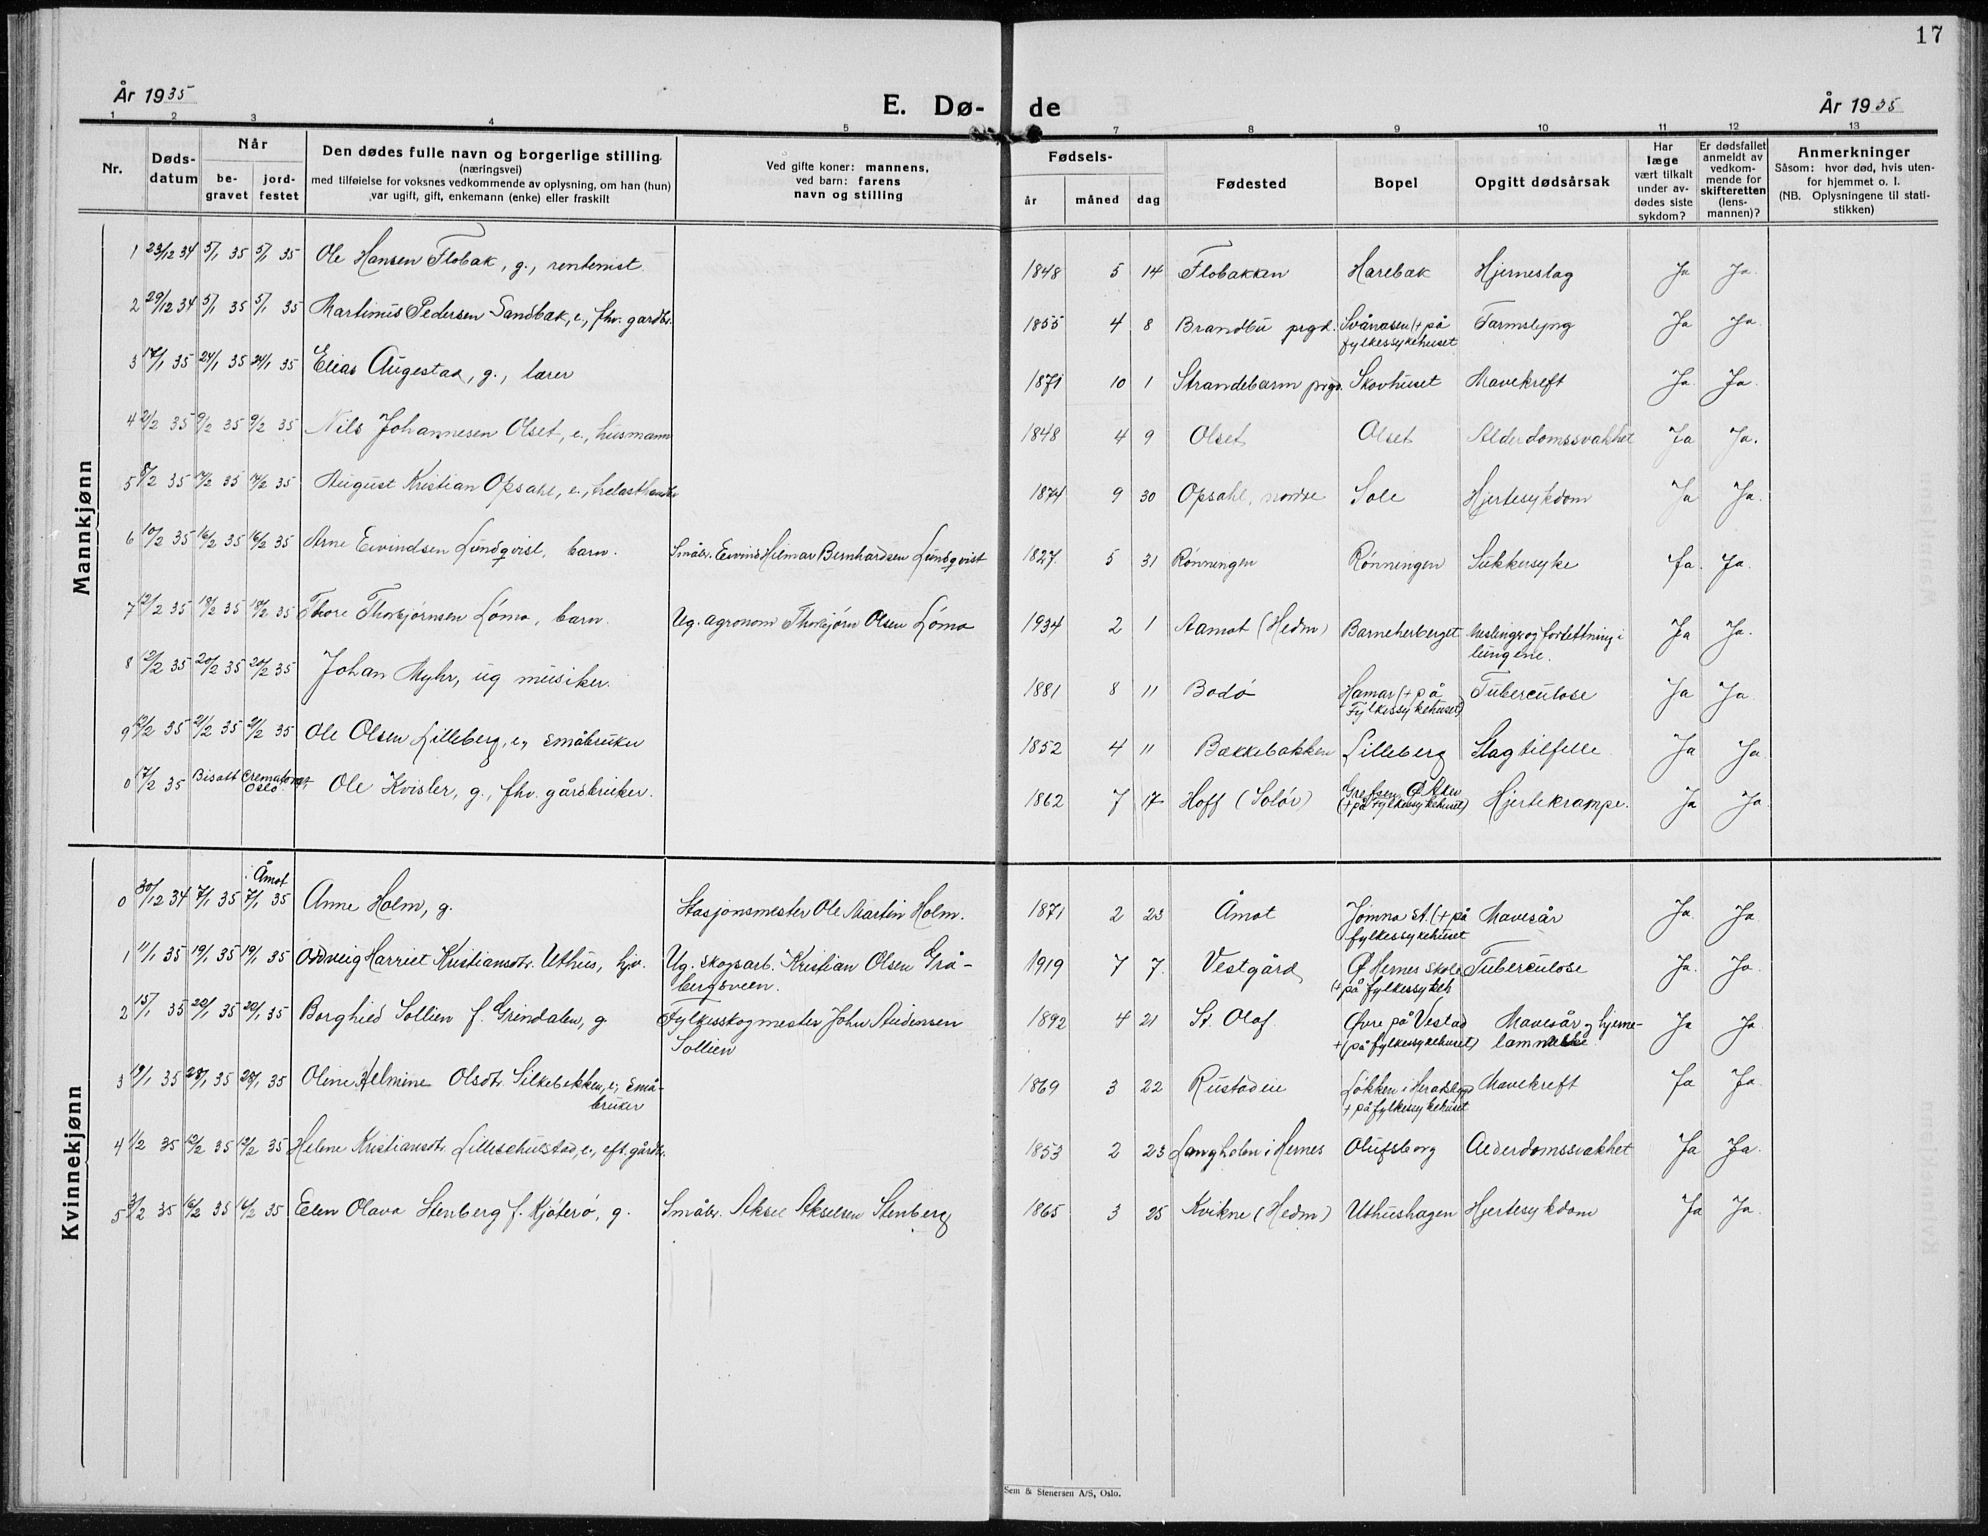 17
År 1935 E. Dø- de År 1935
1 2 3 4 5 7 8 9 10 11 12 13
Nr.
Døds-
datum
Når
be-
gravet
jord-
festet
Den dødes fulle navn og borgerlige stilling
(næringsvei)
med tilføielse for voksnes vedkommende av oplysning, om han (hun)
var ugift, gift, enkemann (enke) eller fraskilt
Ved gifte koner: mannens,
ved barn: farens
navn og stilling
Fødsels-
år måned dag
Fødested
Bopel
Opgitt dødsårsak
Har
læge
vært tilkalt
under av-
dødes siste
sykdom?
Er dødsfallet
anmeldt av
vedkom-
mende for
skifteretten
(lens-
mannen)?
Anmerkninger
Såsom: hvor død, hvis uten-
for hjemmet o. l.
(NB. Oplysningene til stati-
stikken)
Mannkjønn
1 23/12 34 5/1 35 5/1 35 Ole Hansen Flobak, g., rentenist 1848 5 14 Flobakken Harebak Hjerneslag Ja Ja
2 29/12 34 5/1 35 5/1 35 Martinus Pedersen Sandbak, e., fhv. gardbr. 1855 4 8 Brandbu prgd. Svånåsen (+ på Tarmslyng Ja Ja
fylkessykehuset
3 17/1 35 24/1 35 24/1 35 Elias Augestad, g., lærer 1871 10 1 Strandebarm prgd. Skovhuset Mavekreft Ja Ja.
4 2/2 35 9/2 35 9/2 35 Nils Johannesen Olset, e., husmann 1848 4 9 Olset Olset Alderdomssvakhet Ja Ja.
5 8/2 35 17/2 35 17/2 35 August Kristian Opsahl, e., 1874 9 30 Opsahl, nordre Sole Hjertesykdom Ja Ja.
6 10/2 35 16/2 35 16/2 35 Arne Eivindsen Lundqvist, barn. Småbr. Eivind Hilmar Bernhardsen Lundqvist 1827 5 31 Rønningen Rønningen Sukkersyke Ja. Ja.
7 12/2 35 18/2 35 18/2 35 Thore Thorbjørnsen Lømo, barn. Ug. agronom Thorbjørn Olsen Lømo 1934 2 1 Aamot (Hedm) Barneherberget Meslinger og fortettning i Ja Ja.
lungene.
8 12/2 35 20/2 35 20/2 35 Johan Myhr, ug musiker. 1881 8 11 Bodø Hamar (+ på Tuberculose Ja Ja
Fylkessykehuset)
9 12/2 35 21/2 35 21/2 35 Ole Olsen Lilleberg, e., småbruker 1852 4 11 Bakkebakken Lilleberg Slagtilfelle Ja Ja
0 17/2 35 Bisatt Crematoriet Ole Kvisler, g., fhv. gårdbruker. 1862 7 17 Hoff (Solør) Grefsen, Ø Aker Hjertekrampe. Ja Ja
Oslo (+ på Fylkessykehuset)
Kvinnekjønn
i Åmot
0 30/12 34 7/1 35 7/1 35 Anne Holm, g. Stasjonsmester Ole Martin Holm. 1871 2 23 Åmot Jømna st. (+ på Mavesår Ja Ja
fylkessykehuset
1 11/1 35 19/1 35 19/1 35 Oddveig Harriet Kristiansdtr. Uthus, hjv. Ug. skogsarb. Kristian Olsen Grå- 1919 7 7 Vestgård Ø Hernes skole Tuberculose Ja. Ja.
bergsveen. (+ på fylkessykeh
2 15/1 35 20/1 35 20/1 35 Borghild Sollien f. Grindalen, g Fylkesskogmester John Sollien 1892 4 21 St. Olof Øvre på Vestad Mavesår og hjerne- Ja Ja.
+ (på fylkessykehuset) lammelse
3 19/1 35 28/1 35 28/1 35 Oline Helmine Olsdtr. Silkebekken, e., små- 1869 3 22 Rustadeie Løkken i Heradsbygd Mavekreft Ja Ja.
bruker + på fylkessykehuset
4 1/2 35 12/2 35 12/2 35 Helene Kristiansdtr. Lilleschulstad, e., eft. gårdbr. 1853 2 23 Langholen i Hernes Olufsborg Alderdomssvakhet Ja Ja.
5 3/2 35 16/2 35 16/2 35 Elen Olava Stenberg f. Kjøterø, g. Småbr. Aksel Akselsen Stenberg 1865 3 25 Kvikne (Hedm) Uthushagen Hjertesykdom Ja Ja.
Sem & Stenersen A/S, Oslo.